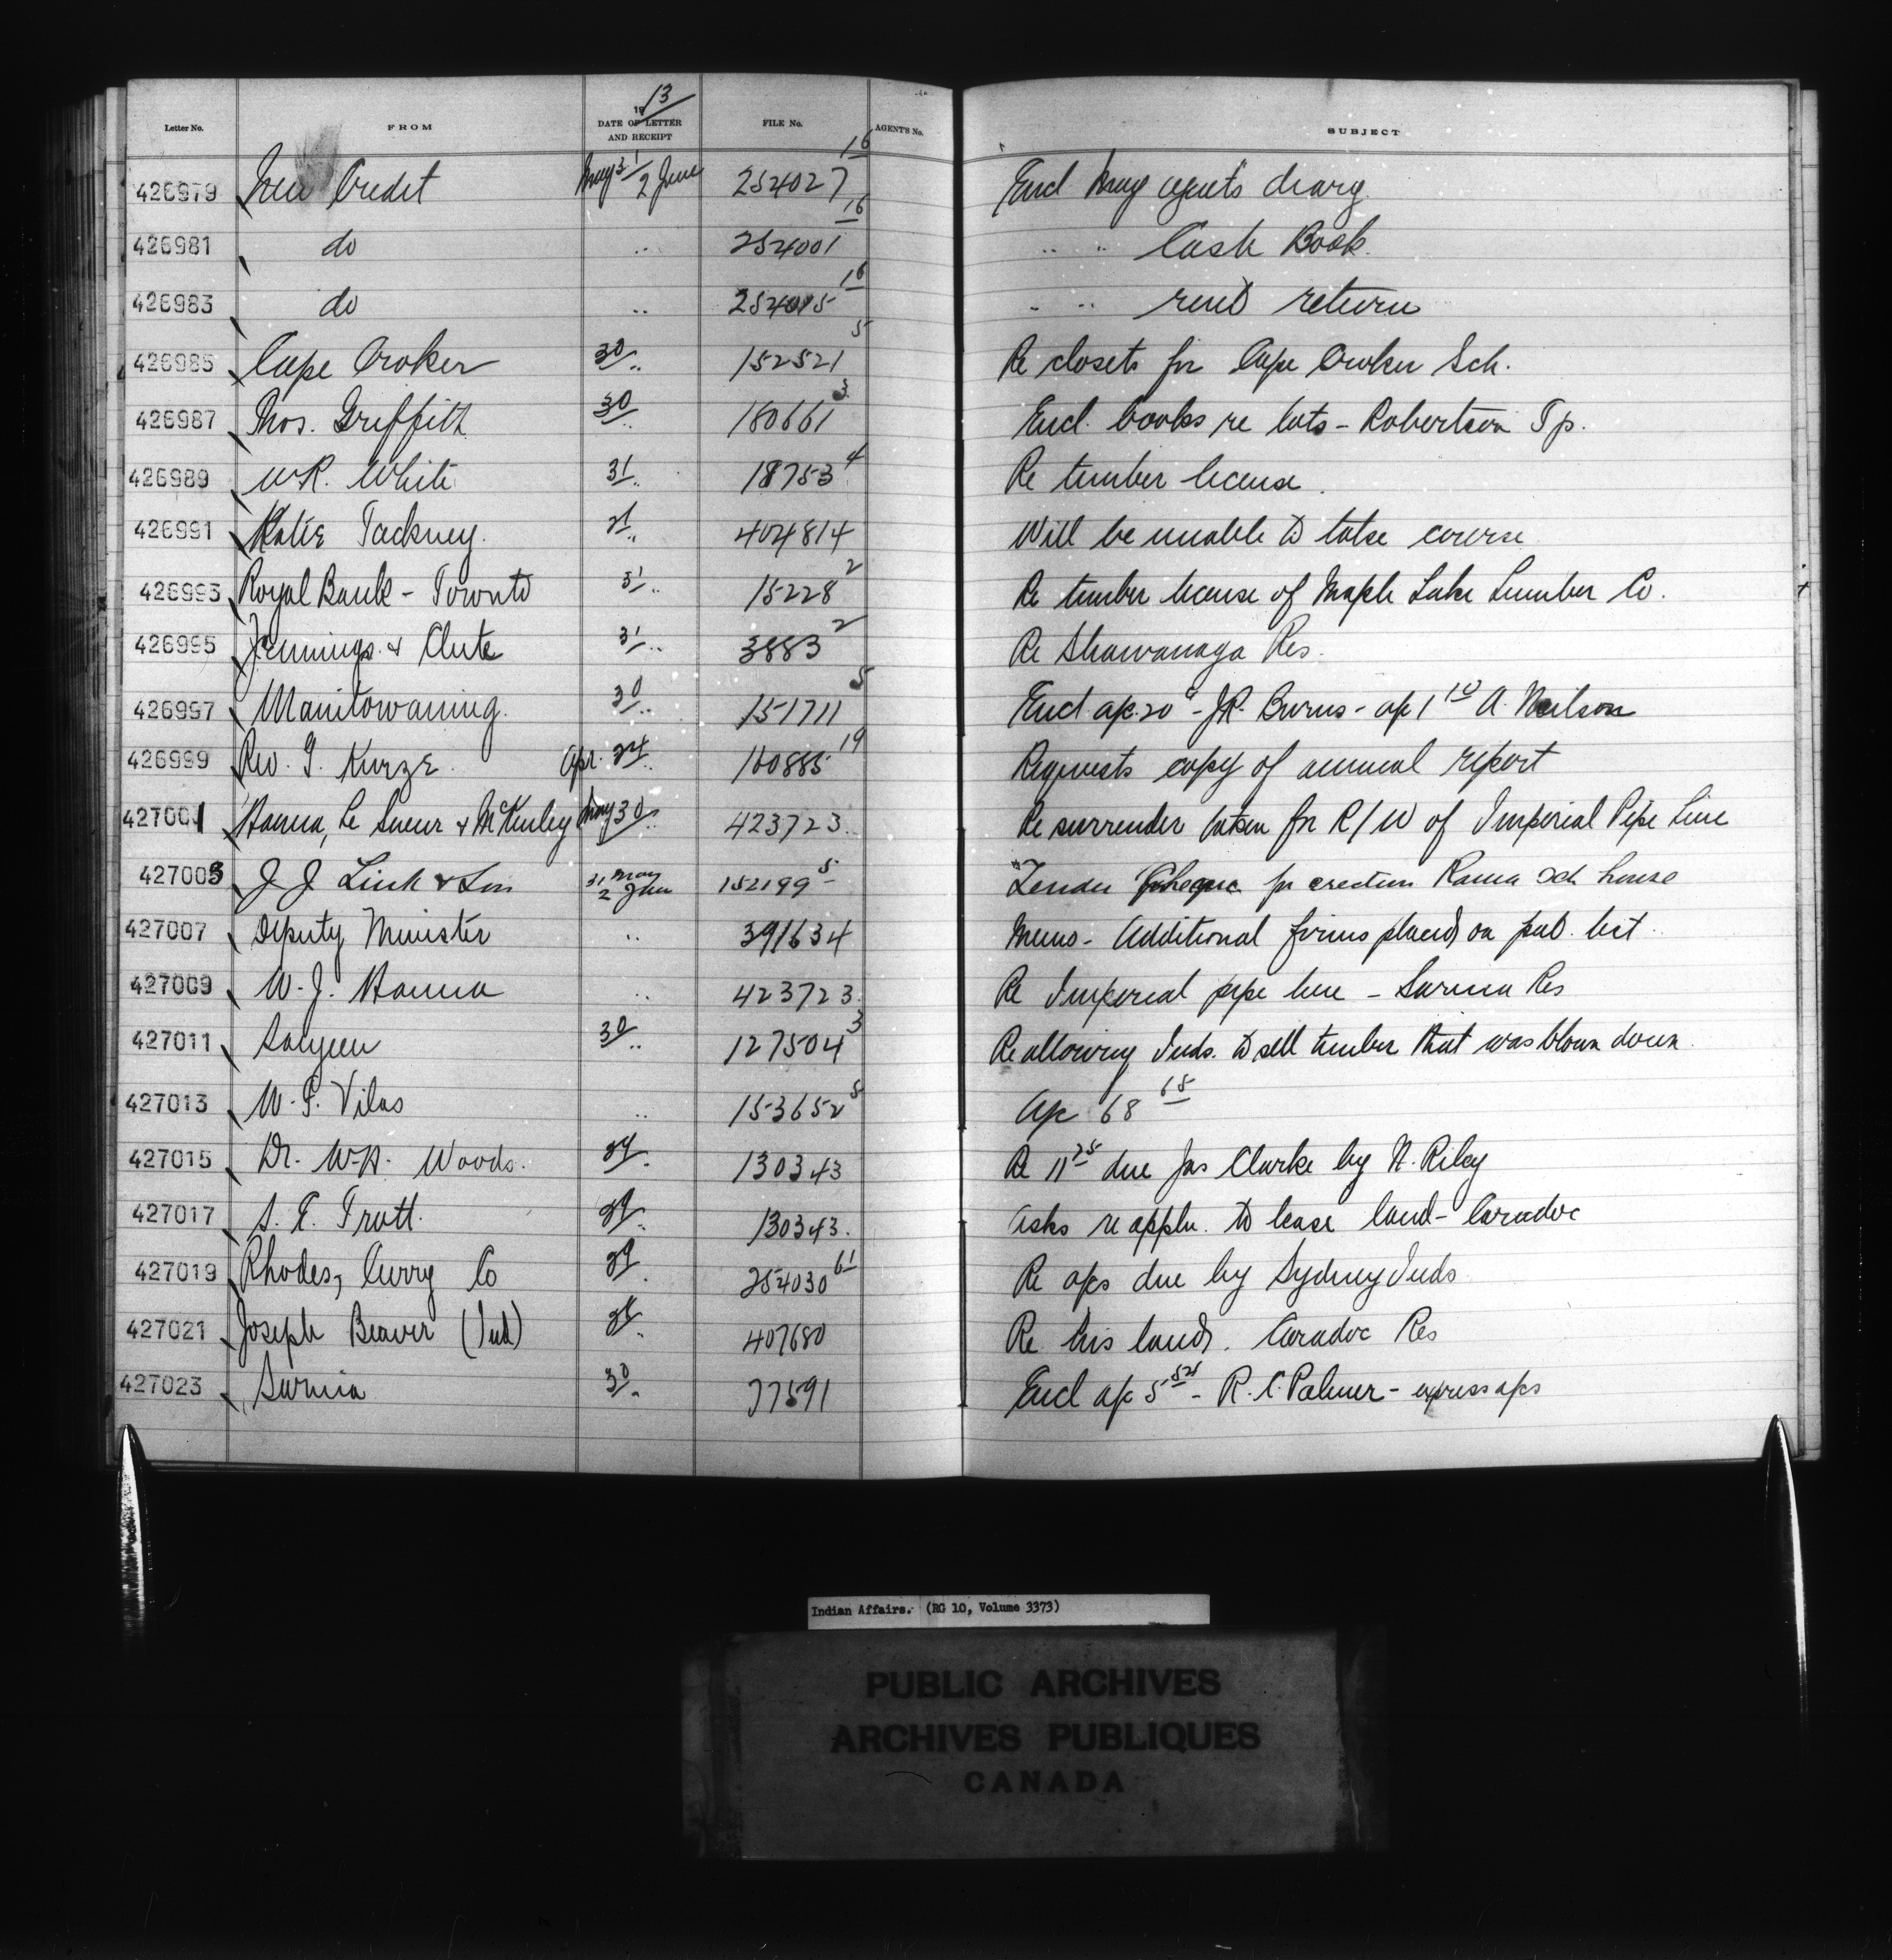 Letter No. FROM 1913 DATE OF LETTER AND RECEIPT FILE No. AGENT'S No. SUBJECT
426979 New Credit May 31/2 June 254027 16 Encl May agent's diary
426981 do .. 254001 16 .. .. Cash Book.
426983 do .. 254015 16 .. .. rent return
426985 Cape Croker 30 .. 152521 5 Re closets for Cape Croker Sch.
426987 Thos. Griffith 30 .. 180661 3 Encl. books re lots - Robertson Tp.
426989 W.R. White 31 .. 18753 4 Re timber license.
426991 Katie Tackney. .. 404814 Will be unable to take course
426993 Royal Bank - Toronto 31 .. 15228 2 Re timber license of Maple Lake Lumber Co.
426995 Jennings & Clute 31 .. 3883 2 Re Shawanaga Res.
426997 Manitowaning. 30 .. 151711 5 Encl. ap. 20 - J.R. Burns - ap 1 10 A. Neilson
426999 Rev. J. Kurze. Apr. 24 .. 160885 19 Requests copy of annual report
427001 Hanna, Le Sueur & McKinley May 30 .. 423723. Re surrender taken for R/W of Imperial Pipe Line
427003 J J Link & Son 31 May 2 June 152199 5 Tender & cheque for erection Rama Sch house
427007 Deputy Minister .. 391634 Memo - Additional firms placed on pub. list.
427009 W. J. Hanna .. 423723. Re Imperial pipe line - Sarnia Res
427011 Saugeen 30 .. 127504 3 Re allowing Inds. to sell timber that was blown down.
427013 W. F. Vilas .. 153652 5 Ap 68 65
427015 Dr. W.A. Woods. 29 .. 130343 Re 11 25 due Jas Clarke by N. Riley
427017 S. E. Trott. 29 .. 130343. Asks re appln. to lease land - Caradoc
427019 Rhodes, Curry Co 29 . 254030 61 Re aps due by Sydney Inds
427021 Joseph Beaver (Ind) 28 . 407680 Re his land. Caradoc Res
427023 Sarnia 30 .. 77591 Encl ap 5 52 - R. C. Palmer - express aps
Indian Affairs. (RG 10, Volume 3373)
PUBLIC ARCHIVES
ARCHIVES PUBLIQUES
CANADA